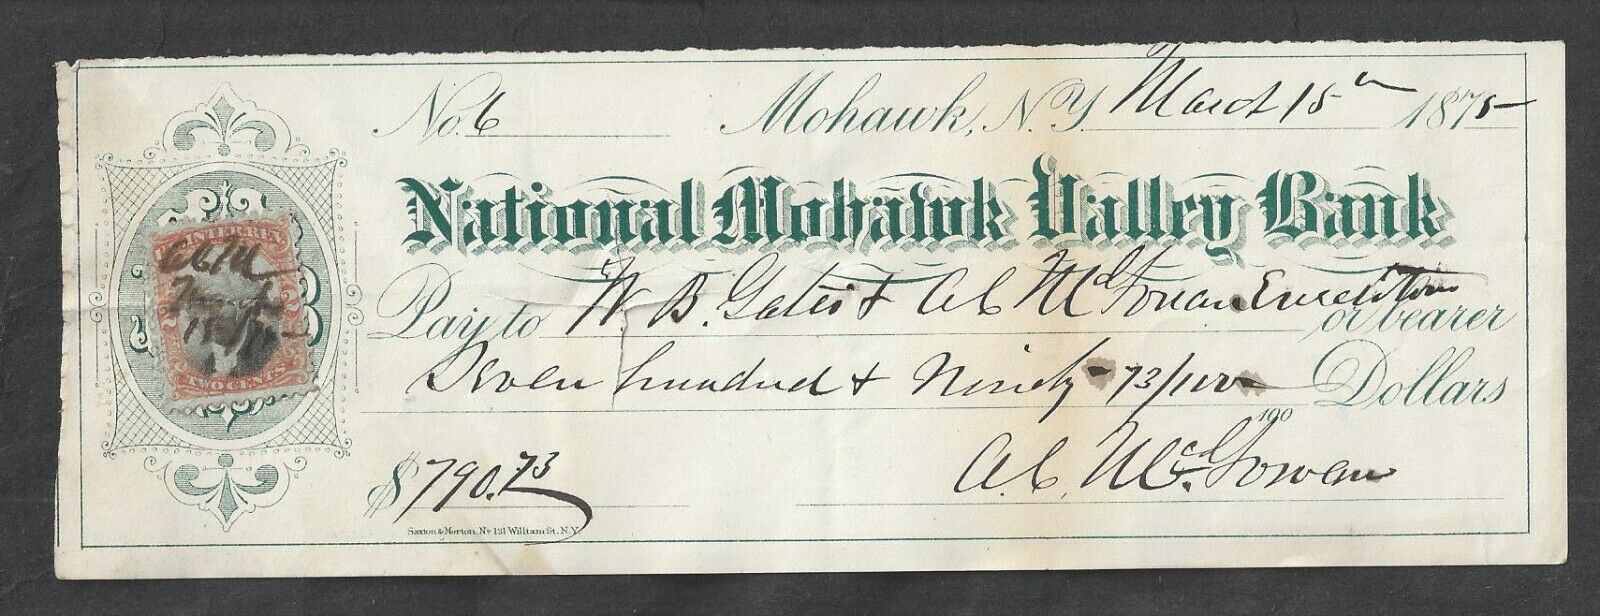 No. 6 Mohawk, N.Y. March 15th 1875
National Mohawk Valley Bank
INTER. REV.
ACM
March
15/75
TWO CENTS
Pay to W. B. Gates & A C McGowan Executors or bearer
Seven hundred & Ninety 73/100 Dollars
100
$790.73 A. C. McGowan
Saxton & Morton, No 121 William St. N.Y.